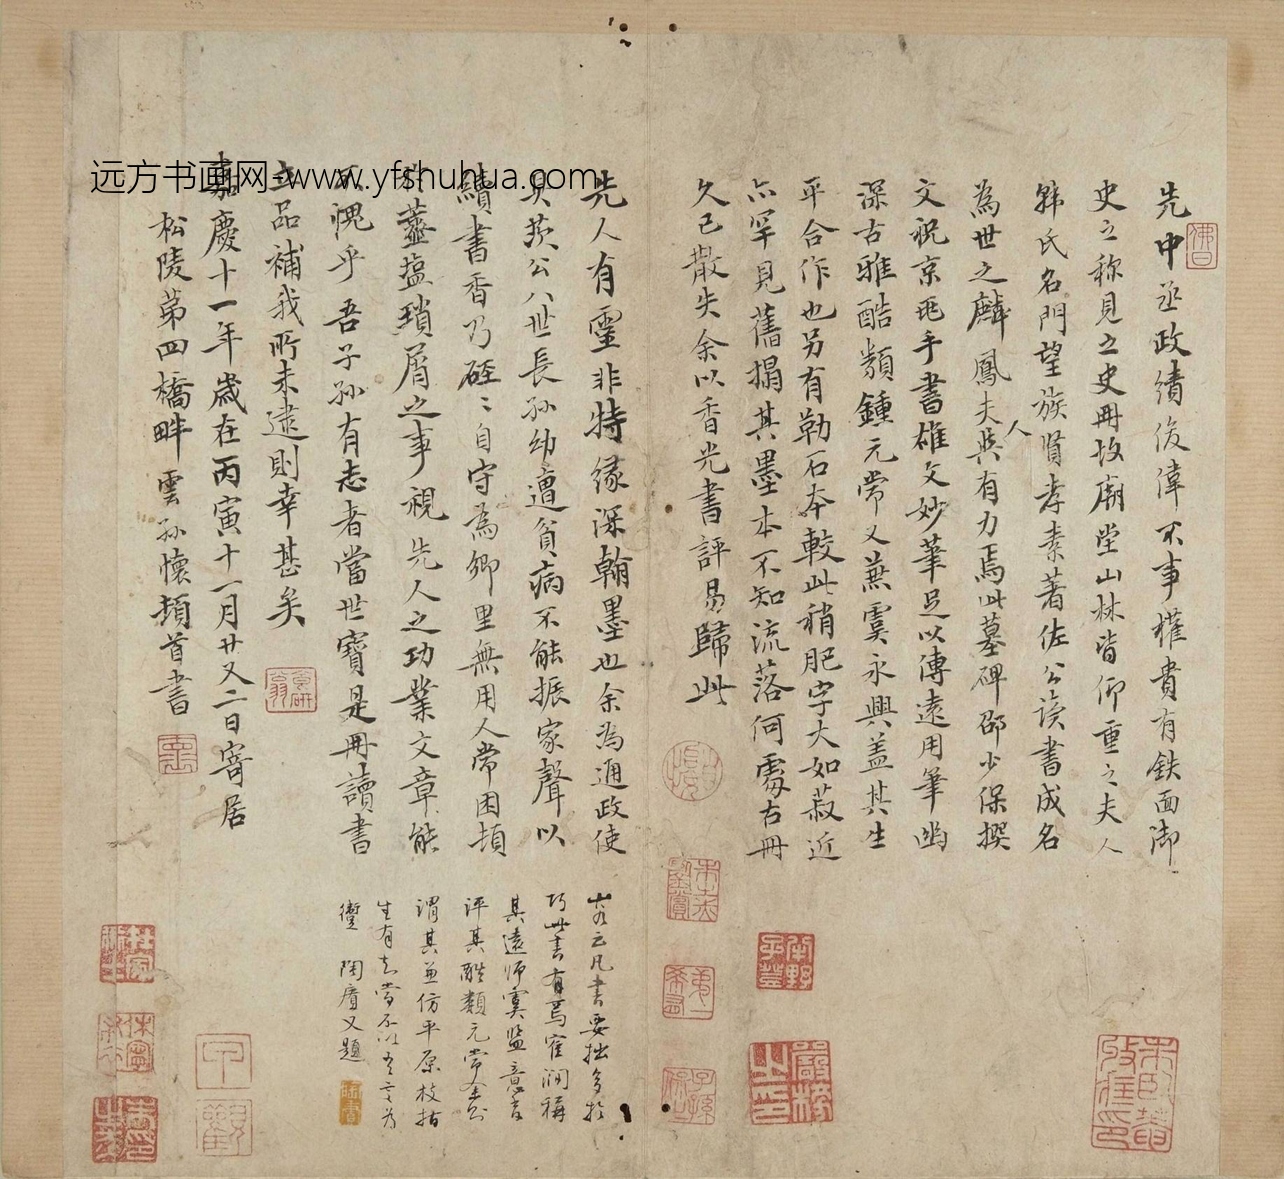 先中丞政績俊偉不事權貴有鉄面御
史之称見之史冊故廟堂山林皆仰重之夫人
韩氏名門望族賢孝素著佐公读書成名
為世之麟鳳夫人與有力焉此墓碑邵少保撰
文祝京兆手書雄文妙筆足以傳遠用筆幽
深古雅酷類鍾元常又兼虞永興盖其生
平合作也另有勒石本較此稍肥字大如菽近
亦罕見舊搨其墨本不知流落何處古冊
久已散失余以香光書評易歸此
先人有靈非特缘深翰墨也余為通政使
莪公八世長孙幼遭貧病不能振家聲以
續書香乃硜〻自守為鄉里無用人常困頓
於虀塩瑣屑之事視先人之功業文章能
不愧乎吾子孙有志者當世寶是冊讀書
立品補我所未逮則幸甚矣
嘉慶十一年歲在丙寅十一月廿又二日寄居
松陵第四橋畔雲孙懷頓首書
云凡書要拙多於
巧此書有焉崔澗稱
其遠师虞监意
評其酷類元常余
謂其兼仿平原枝指
生有知當不以吾言为
陶廣又題
佛日
远方书画网-www.yfshuhua.com